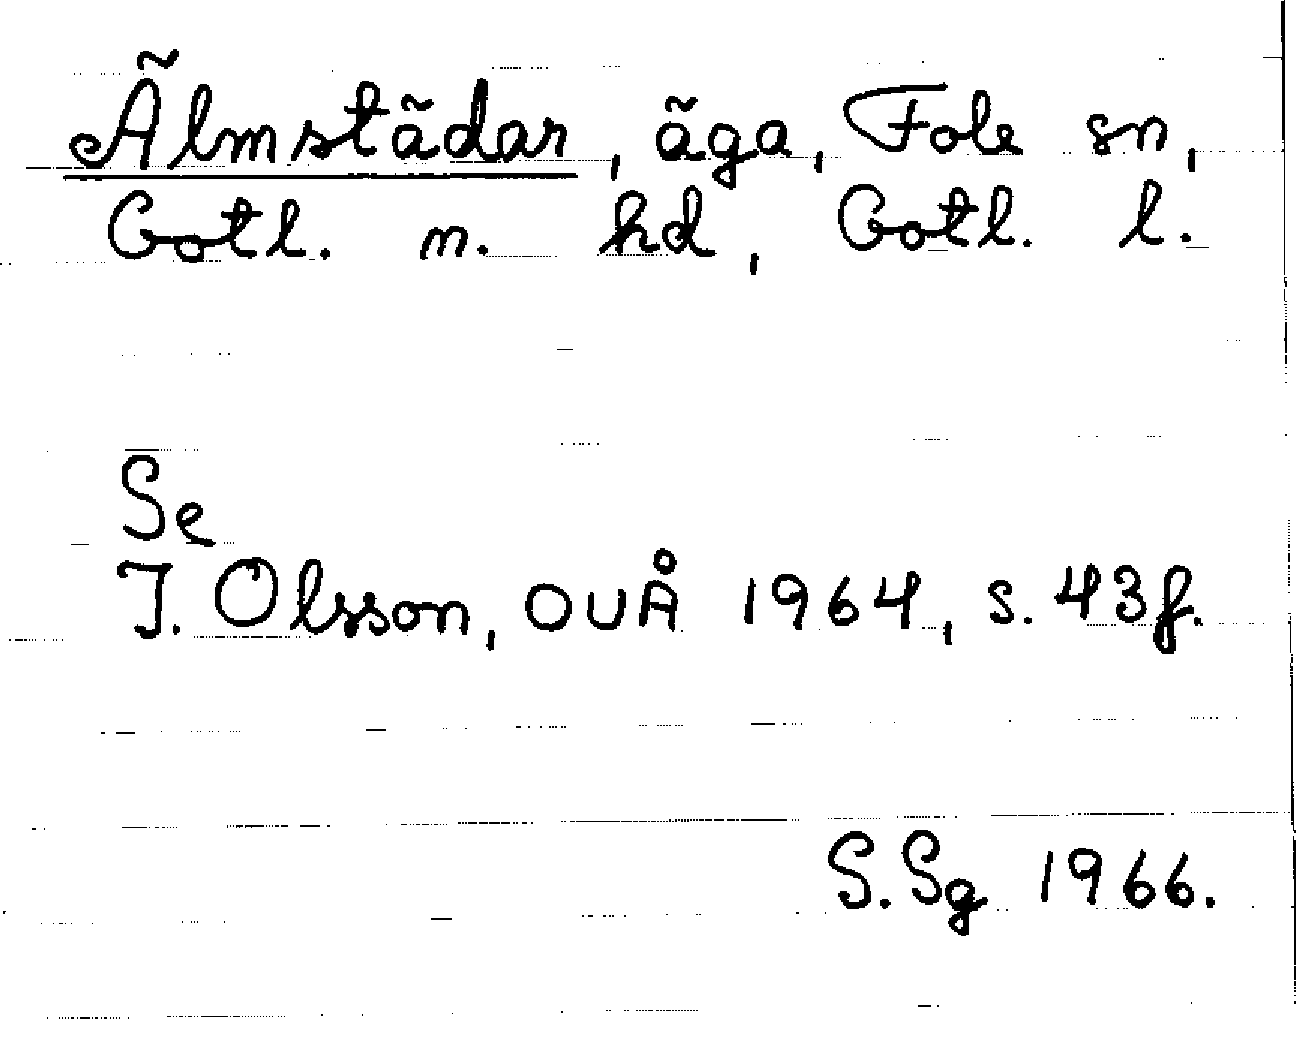 Älmstädar, äga, Fole sn,
Gotl. n. hd, Gotl. l.
Se
I. Olsson, OUÅ 1964, s. 43f.
S.Sg 1966.